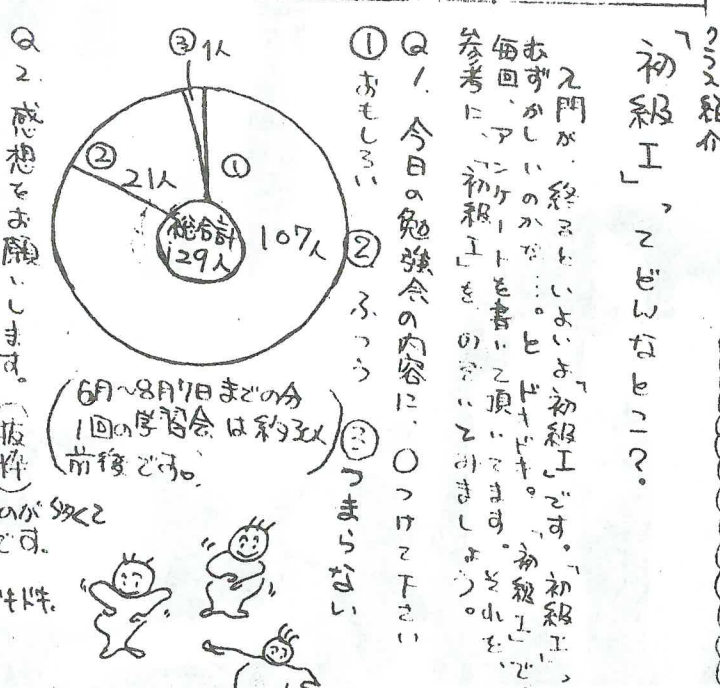 クラス紹介
「初級Ⅰ」ってどんなとこ?。
入門が、終るといよいよ「初級Ⅰ」です。「初級Ⅰ」っ
むずかしいのかな…。と ドキドキ。「初級Ⅰ」で
毎回、アンケートを書いて頂いてます。それを、
参考に、「初級Ⅰ」をのぞいてみましょう。
Q1. 今日の勉強会の内容に、○つけて下さい
① おもしろい ② ふつう ③ つまらない
③ 1人
② 21人
① 107人
総合計
129人
(6月~8月7日までの分
1回の学習会は約30人
前後です。)
Q2. 感想をお願いします。(抜粋)
のが多くて
です。
キドキ.